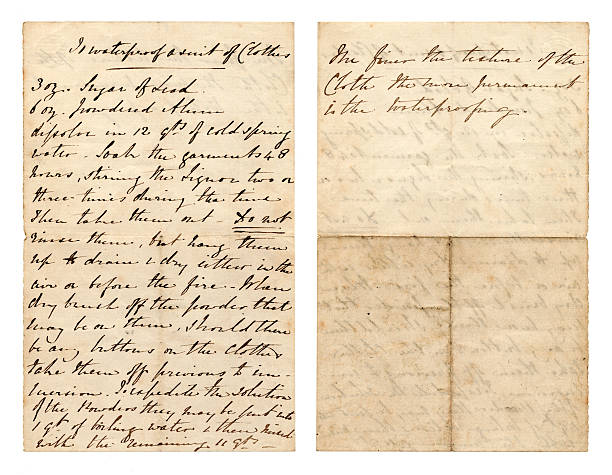 To waterproof a suit of Clothes
3 oz. Sugar of Lead
6 oz. Powdered Alum
dissolve in 12 qts of cold spring
water. Soak the garments 48
hours, stirring the liquor two or
three times during that time
then take them out - Do not
rinse them, but hang them
up to drain & dry either in the
air or before the fire - When
dry brush off the powder that
may be on them, should there
be any buttons on the Clothes
take them off previous to im-
mersion. To expedite the solution
of the Powders they may be put into
1 qt of boiling water & then mixed
with the remaining 11 qts -
The finer the texture of the
Cloth the more permanent
is the waterproofing.